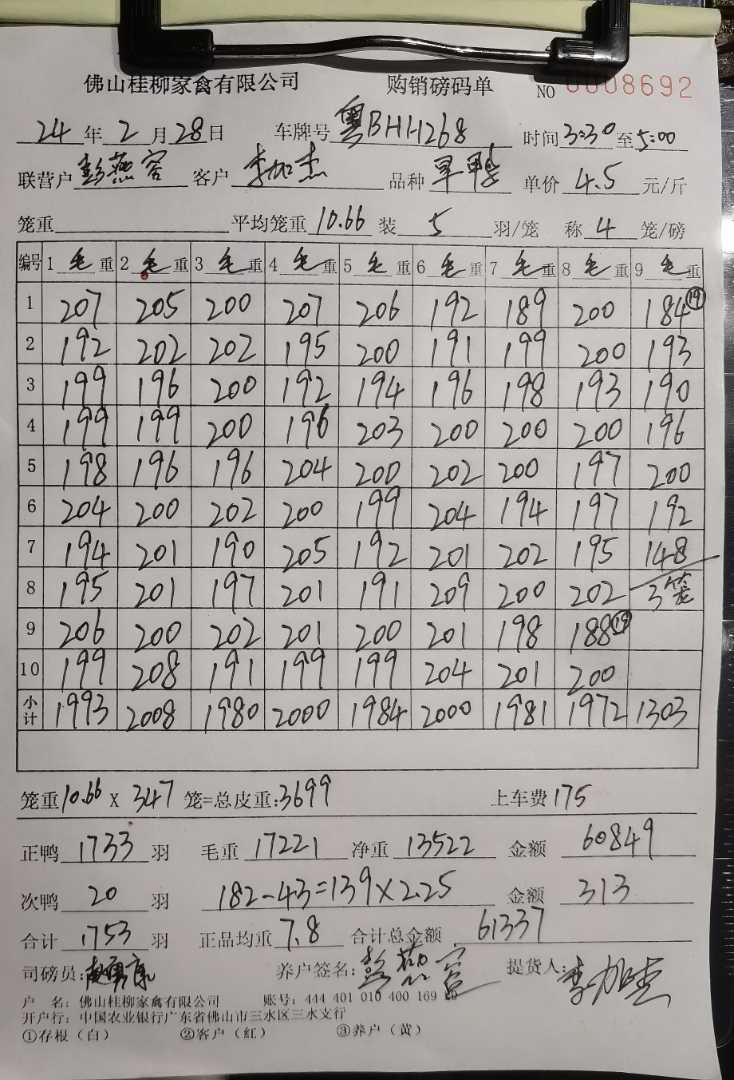 佛山桂柳家禽有限公司 购销磅码单 NO 0008692
24 年 2 月 28 日 车牌号 粤BHH268 时间 3:30 至 5:00
联营户 彭燕容 客户 李加杰 品种 旱鸭 单价 4.5 元/斤
笼重 平均笼重 10.66 装 5 羽/笼 称 4 笼/磅
编号 1 毛重 2 毛重 3 毛重 4 毛重 5 毛重 6 毛重 7 毛重 8 毛重 9 毛重
1 207 205 200 207 206 192 189 200 184 ⑲
2 192 202 202 195 200 191 199 200 193
3 199 196 200 192 194 196 198 193 190
4 199 199 200 196 203 200 200 200 196
5 198 196 196 204 200 202 200 197 200
6 204 200 202 200 199 204 194 197 192
7 194 201 190 205 192 201 202 195 148
8 195 201 197 201 191 209 200 202 3笼
9 206 200 202 201 200 201 198 188 ⑲
10 199 208 191 199 199 204 201 200
小计 1993 2008 1980 2000 1984 2000 1981 1972 1303
笼重 10.66 X 347 笼=总皮重:3699 上车费 175
正鸭 1733 羽 毛重 17221 净重 13522 金额 60849
次鸭 20 羽 182-43=139×2.25 金额 313
合计 1753 羽 正品均重 7.8 合计总金额 61337
司磅员: 养户签名: 彭燕容 提货人: 李加杰
户 名: 佛山桂柳家禽有限公司 账号: 444 401 010 400 169
开户行: 中国农业银行广东省佛山市三水区三水支行
①存根(白) ②客户(红) ③养户(黄)